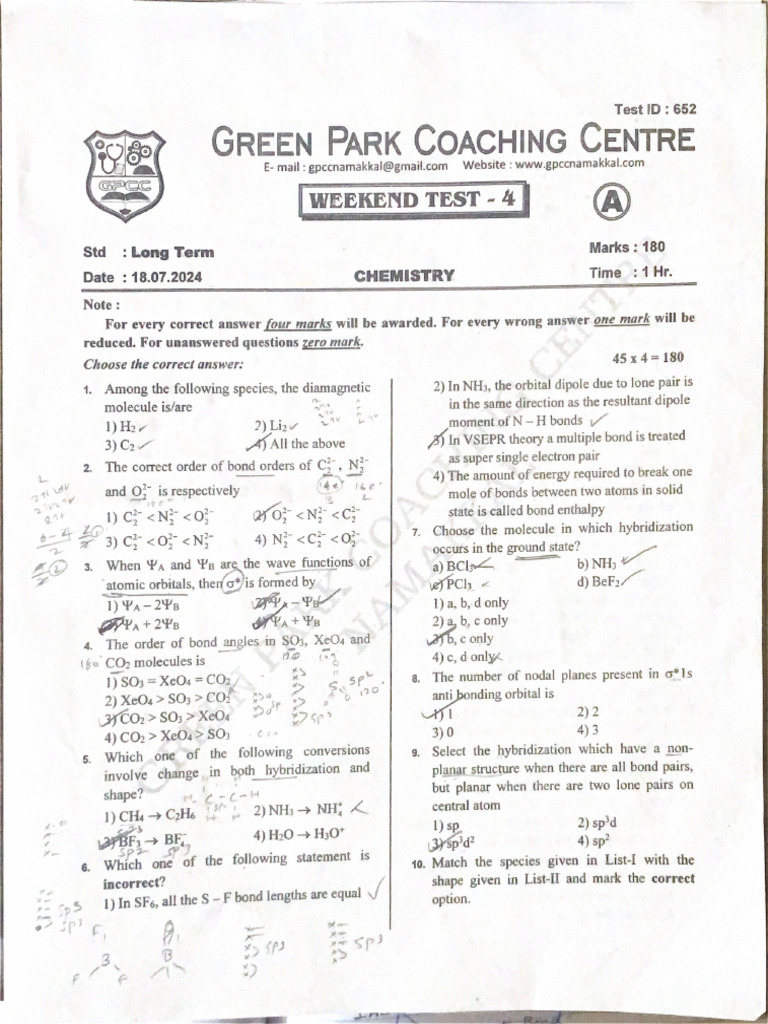 Test ID : 652
GPCC
GREEN PARK COACHING CENTRE
E- mail : gpccnamakkal@gmail.com Website : www.gpccnamakkal.com
WEEKEND TEST - 4
A
Std : Long Term
Marks : 180
Date : 18.07.2024
CHEMISTRY
Time : 1 Hr.
Note :
For every correct answer four marks will be awarded. For every wrong answer one mark will be
reduced. For unanswered questions zero mark.
Choose the correct answer:
45 x 4 = 180
1. Among the following species, the diamagnetic
molecule is/are
1) H₂ 2) Li₂
3) C₂ 4) All the above
2. The correct order of bond orders of C₂²⁻, N₂²⁻
and O₂²⁻ is respectively
1) C₂²⁻ < N₂²⁻ < O₂²⁻ 2) O₂²⁻ < N₂²⁻ < C₂²⁻
3) C₂²⁻ < O₂²⁻ < N₂²⁻ 4) N₂²⁻ < C₂²⁻ < O₂²⁻
3. When ΨA and ΨB are the wave functions of
atomic orbitals, then σ* is formed by
1) ΨA – 2ΨB 2) ΨA – ΨB
3) ΨA + 2ΨB 4) ΨA + ΨB
4. The order of bond angles in SO₃, XeO₄ and
180 CO₂ molecules is
1) SO₃ = XeO₄ = CO₂
2) XeO₄ > SO₃ > CO₂
3) CO₂ > SO₃ > XeO₄
4) CO₂ > XeO₄ > SO₃
5. Which one of the following conversions
involve change in both hybridization and
shape?
1) CH₄ → C₂H₆ 2) NH₃ → NH₄⁺
3) BF₃ → BF₄⁻ 4) H₂O → H₃O⁺
sp2 sp3
6. Which one of the following statement is
incorrect?
1) In SF₆, all the S – F bond lengths are equal
2) In NH₃, the orbital dipole due to lone pair is
in the same direction as the resultant dipole
moment of N – H bonds
3) In VSEPR theory a multiple bond is treated
as super single electron pair
4) The amount of energy required to break one
mole of bonds between two atoms in solid
state is called bond enthalpy
7. Choose the molecule in which hybridization
occurs in the ground state?
a) BCl₃ b) NH₃
c) PCl₃ d) BeF₂
1) a, b, d only
2) a, b, c only
3) b, c only
4) c, d only
8. The number of nodal planes present in σ*1s
anti bonding orbital is
1) 1 2) 2
3) 0 4) 3
9. Select the hybridization which have a non-
planar structure when there are all bond pairs,
but planar when there are two lone pairs on
central atom
1) sp 2) sp³d
3) sp³d² 4) sp²
10. Match the species given in List-I with the
shape given in List-II and mark the correct
option.
GREEN PARK COACHING CENTRE
NAMAKKAL